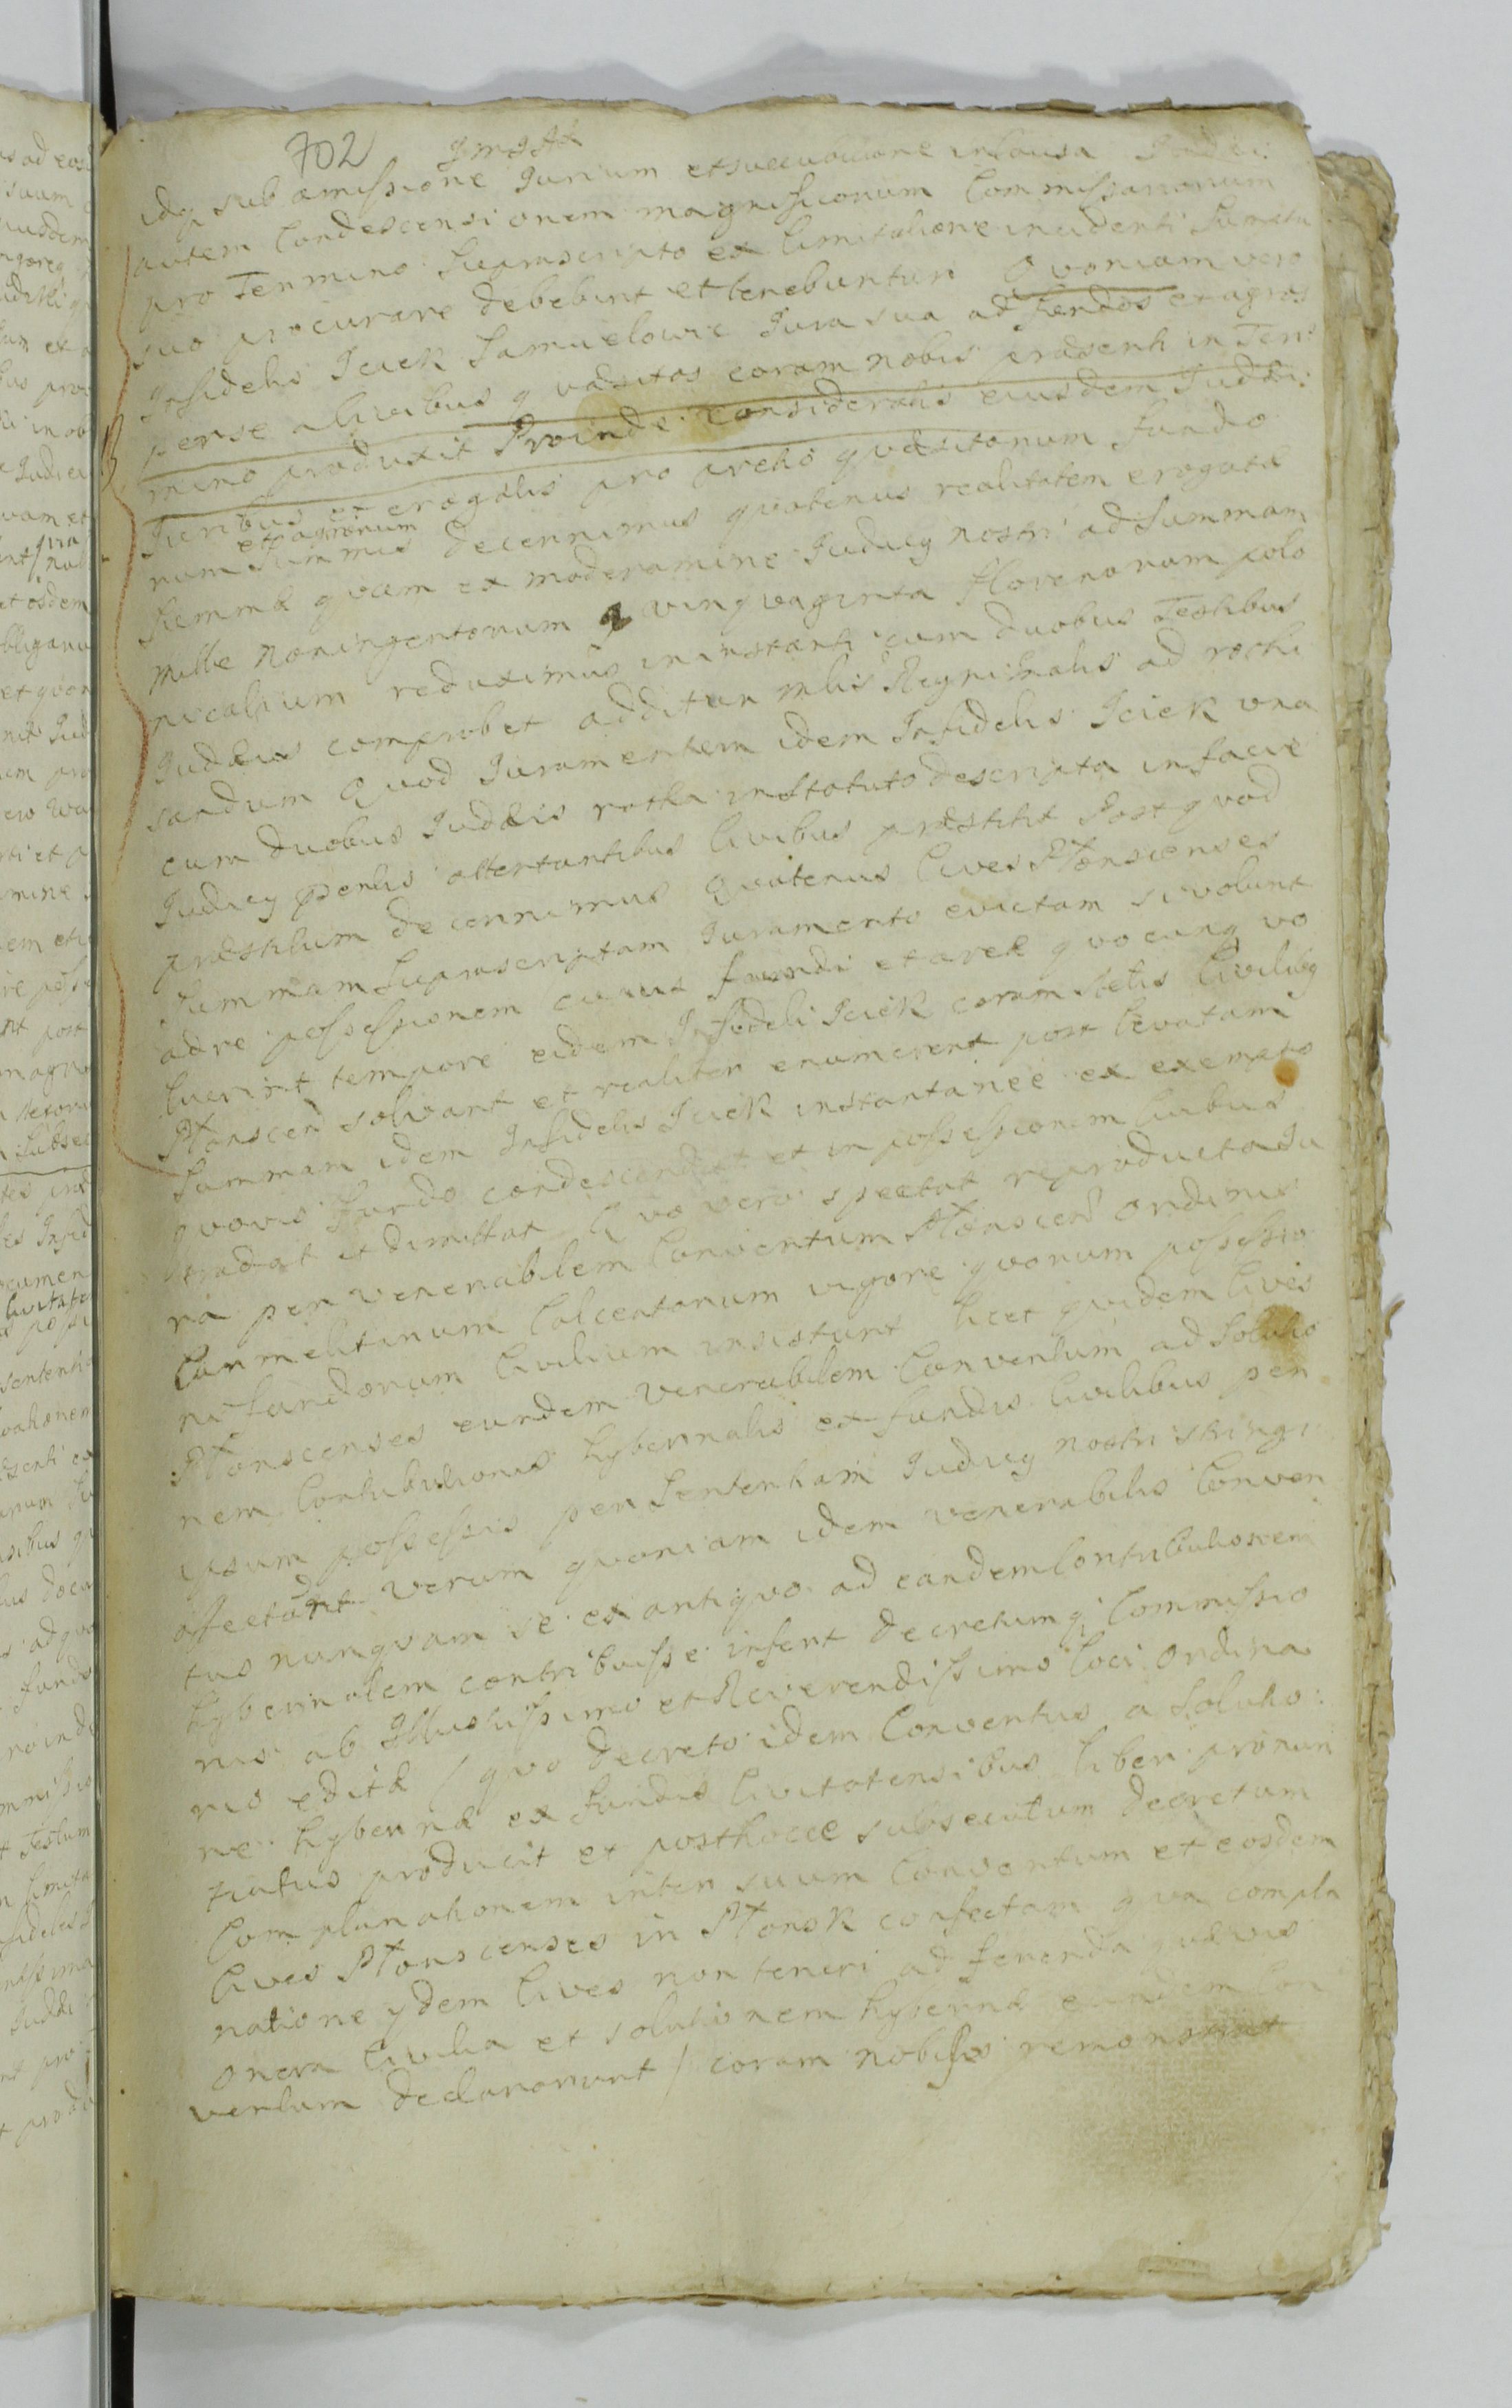 702
idq sub amissione Jurium et succubitione in Causa Judaei
autem Condescensionem magnificorum Commissariorum
pro Termino Suprascripto ex limitatione incidenti Sumptu
suo procurare debebunt et tenebuntur Qvoniam vero
Infidelis Icick Samuelowic Jura sua ad fundos et agros
per se a Civibus qvaesitos coram nobis praesenti in Ter:
mino produxit Proinde consideratis eiusdem Judaei
Juribus et erogatis pro pretio qvaesitorum fundo
et agrorum
rum Summis decernimus qvatenus realitatem erogatae
Summae qvam ex moderamine Judicy nostri ad Summam
mille noningentorum qvinqvaginta florenorum polo
nicalium reduximus in instanti cum duobus Testibus
Judaeis comprobet additur mlis Regni ad rothi
sandum Qvod Juramentum idem Infidelis Icick una
cum duobus Judaeis rotha in Statuto descripta in facie
Judicy nris attentantibus Civibus praestitit Post qvod
praestitum decernimus Qvatenus Cives Płonscenses
Summam Suprascriptam Juramento evictam si volunt
ad re possessionem cuius fundi et areae qvocunq vo
luerint tempore eidem Infideli Icick coram Actis Civilibq
Płonscen solvant et realiter enumerent post levatam
Summam idem Infidelis Icick instantanee ex exempto
qvovis fundo condescendat et in possessionem Civibus
tradat et dimittat Qvo vero spectat reproducta Ju
ra per venerabilem Conventum Płonscen Ordinis
Carmelitarum Calceatorum vigore qvorum possessio
ni fundorum Civilium insistunt licet qvidem Cives
Płonscenses eundem venerabilem Conventum ad Solutio
nem Contributionis hybernalis ex fundis Civilibus per
ipsum possessis per Sententiam Judicy nostri stringi
affectant verum qvoniam idem venerabilis Conven
tus nunqvam se ex antiqvo ad eandem Contributionem
hybernalem contribuisse infert decretumq Commissio
nis ab Illustrissimo et Reverendissimo loci Ordina
rio editae / qvo decreto idem Conventus a Solutio:
ne hybernae ex fundis Civitatensibus liber pronun
tiatus producit et posthocce subsecutum decretum
Complanationem inter suum Conventum et eosdem
Cives Płonscenses in Płonsk confectam qva compla
natione ydem Cives non teneri ad ferenda qvaevis
onera Civilia et solutionem hybernae eundem Con
ventum declararunt / coram nobis remonstrat